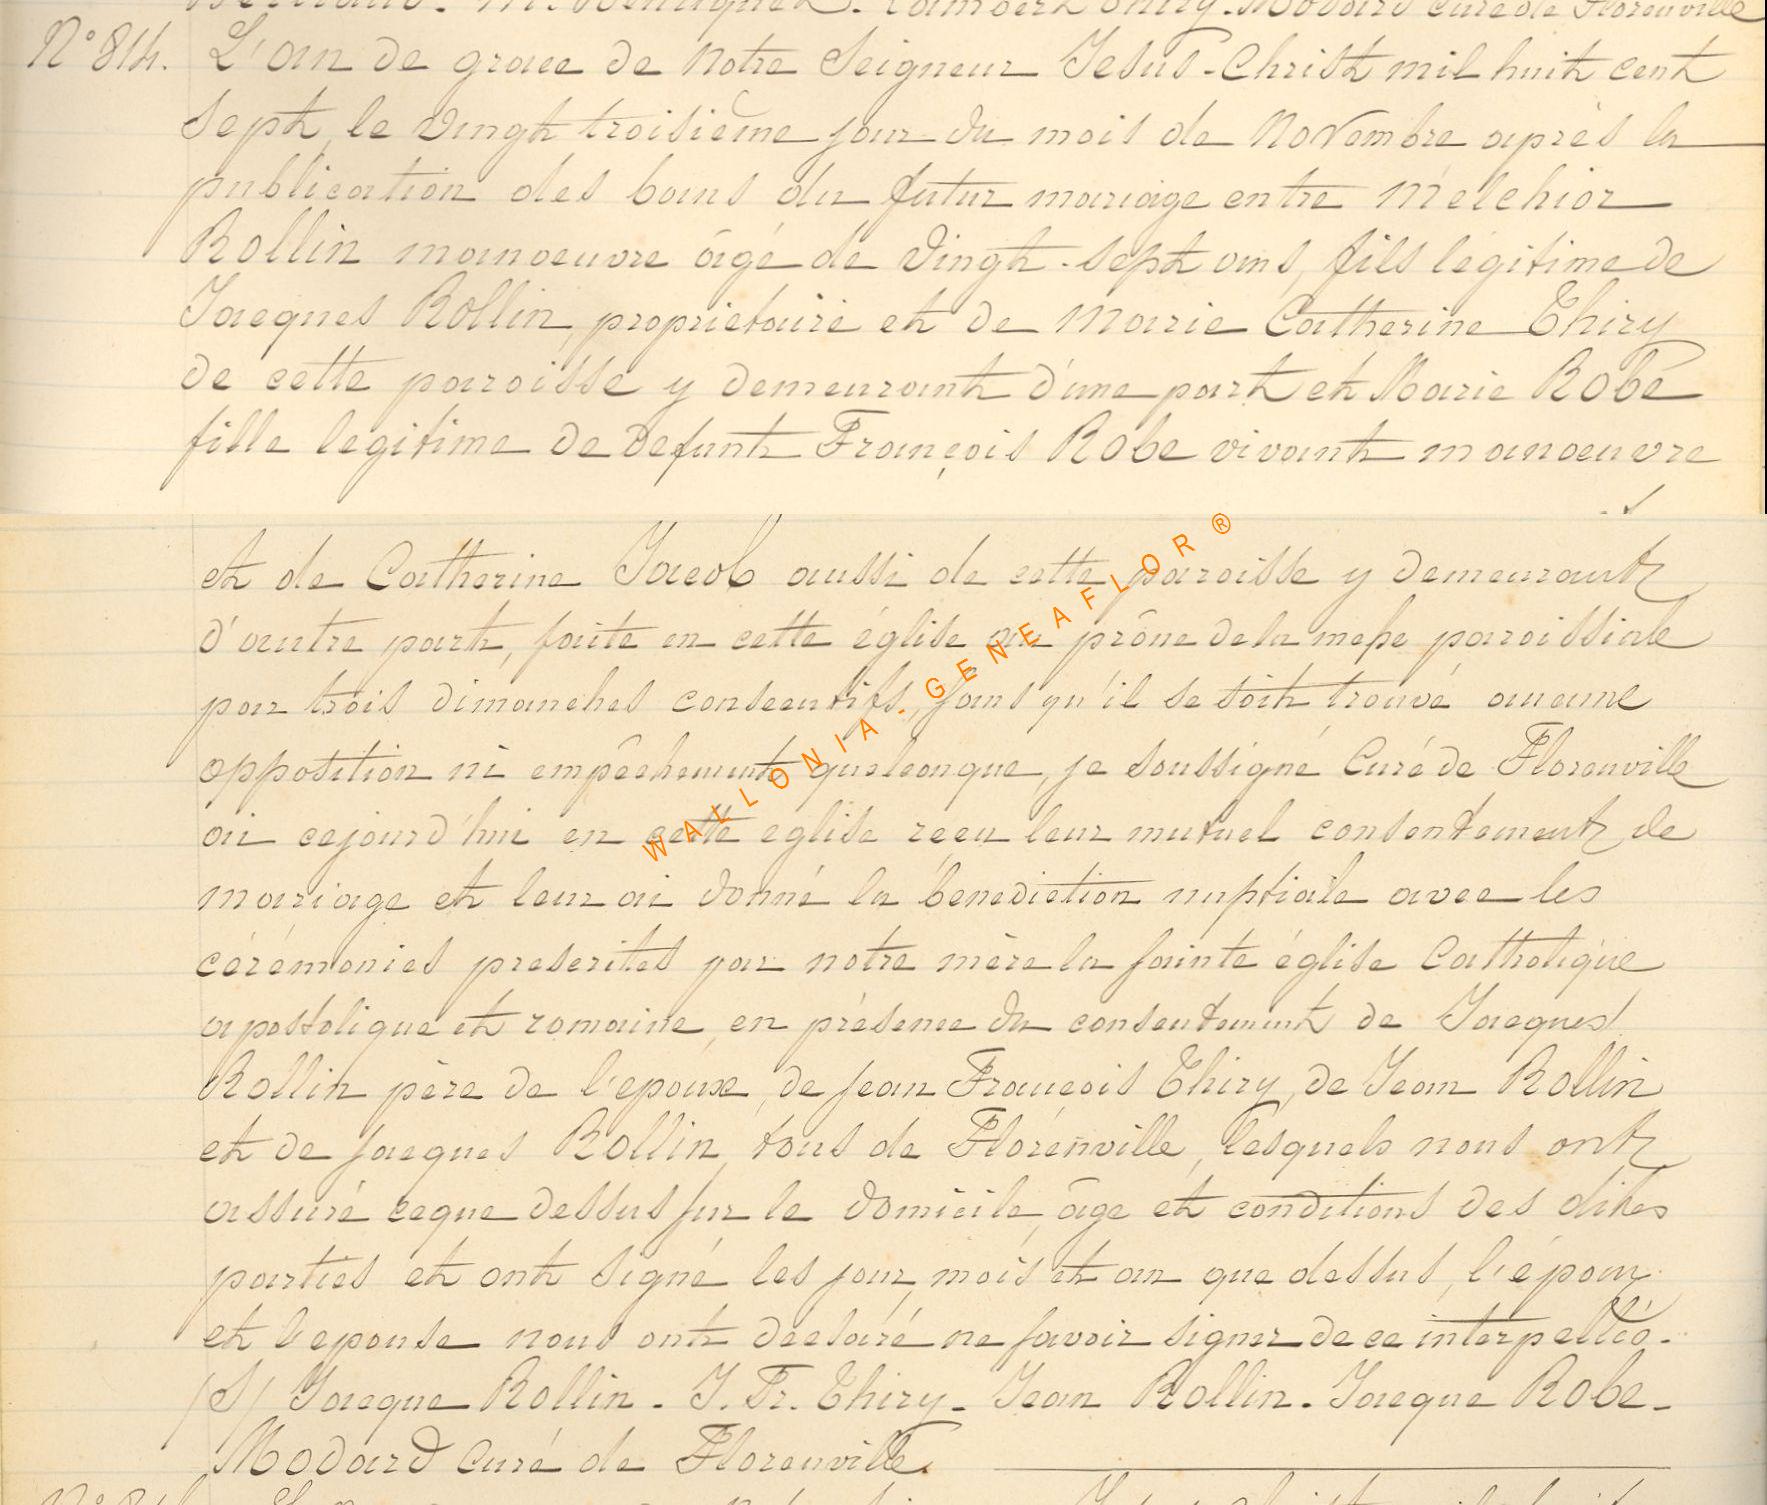 Bertrand. M. Lambert Thiry. Modard curé de Florenville
N° 814. L'an de grace de Notre Seigneur Jesus-Christ mil huit cent
sept, le vingt troisième jour du mois de Novembre après la
publication des bans du futur mariage entre Melchior
Rollin manoeuvre âgé de vingt-sept ans, fils légitime de
Jacques Rollin, propriétaire et de Marie Catherine Thiry
de cette paroisse y demeurant d'une part et Marie Robé
fille legitime de defunt François Robe vivant manoeuvre
et de Catherine Jacob aussi de cette paroisse y demeurant
d'autre part, faite en cette église au prône de la messe paroissiale
par trois dimanches consecutifs, sans qu'il se soit trouvé aucune
opposition ni empêchement quelconque, je soussigné Curé de Florenville
ai cejourd'hui en cette eglise recu leur mutuel consentement de
mariage et leur ai donné la bénédiction nuptiale avec les
cérémonies prescrites par notre mère la sainte église Catholique
apostolique et romaine, en présence du consentement de Jacques
Rollin père de l'epoux, de Jean François Thiry, de Jean Rollin
et de Jacques Rollin, tous de Florenville, lesquels nous ont
assuré ceque dessus sur le domicile, âge et conditions des dites
parties et ont signé les jour, mois et an que dessus, l'époux
et l'epouse nous ont déclaré ne savoir signer de ce interpellés.
/S/ Jacque Rollin - J. Fr. Thiry - Jean Rollin - Jacque Robe -
Modard Curé de Florenville.
WALLONIA - GENEAFLOR ®